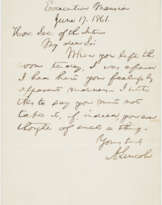 Executive Mansion
June 17, 1861.
Hon Sec. of the Interior
My dear Sir
When you left the
room to-day, I was
I have hurt your feelings by
apparent
this to say you must not
take it, if indeed you
thought of such a thing.
Yours truly
A. Lincoln